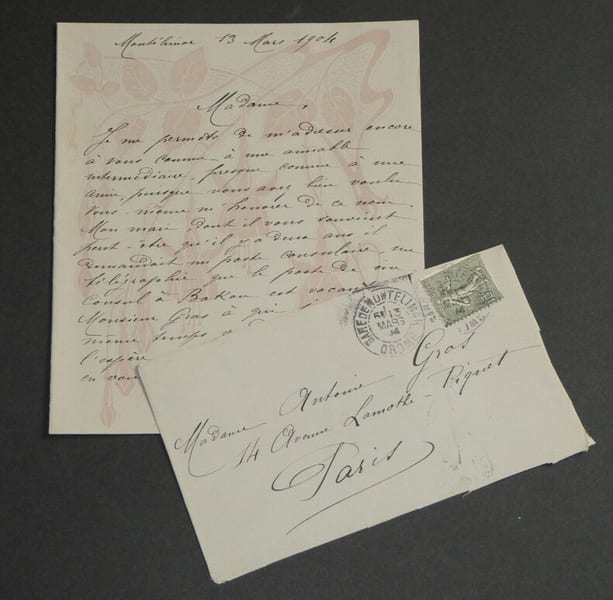 Montélimar 13 Mars 1904
Madame,
Je me permets de m'adresser encore
à vous comme à une aimable
intermédiaire, presque comme à une
amie, puisque vous avez bien voulu
vous-même m'honorer de ce nom.
Mon mari, dont il vous souvient
peut-être qu'il y a deux ans il
demandait un poste consulaire me
télégraphie que le poste de vice
consul à Bakou est vacant
Monsieur Gros à qui
même temps
l'espère
en vou
GARE DE MONTELIMAR
DROME
13
MARS
04
Madame Antoine Gros
14 Avenue Lamothe-Piquet
Paris